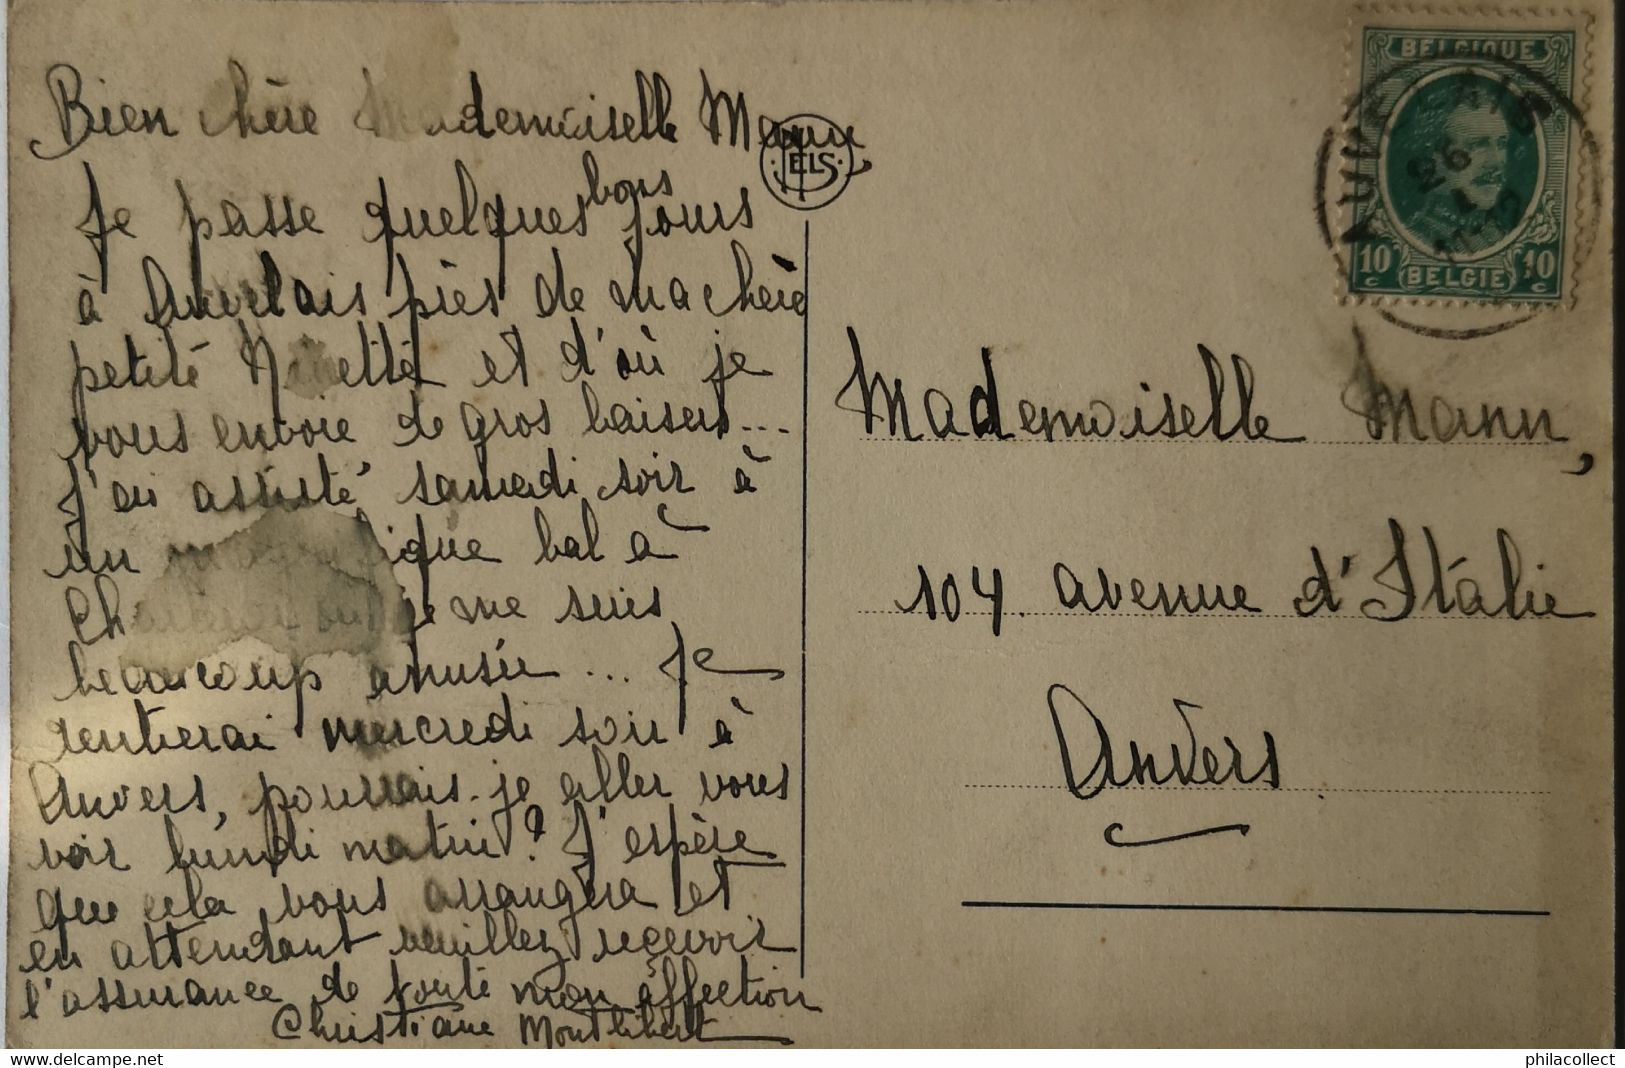 Bien chère Mademoiselle Mann,
Je passe quelques bons jours
à Auvelais près de ma chère
petite Ninette et d'où je
vous envoie de gros baisers...
J'ai assisté samedi soir à
un magnifique bal à
je me suis
beaucoup amusée... Je
rentrerai mercredi soir à
Anvers, pourrais-je aller vous
voir lundi matin? J'espère
que cela vous arrangera et
en attendant veuillez recevoir
l'assurance de toute mon affection
Christiane
ELS
BELGIQUE
AUVELAIS
26
10 c BELGIE 10 c
Mademoiselle Mann,
104 avenue d'Italie
Anvers
philacollect